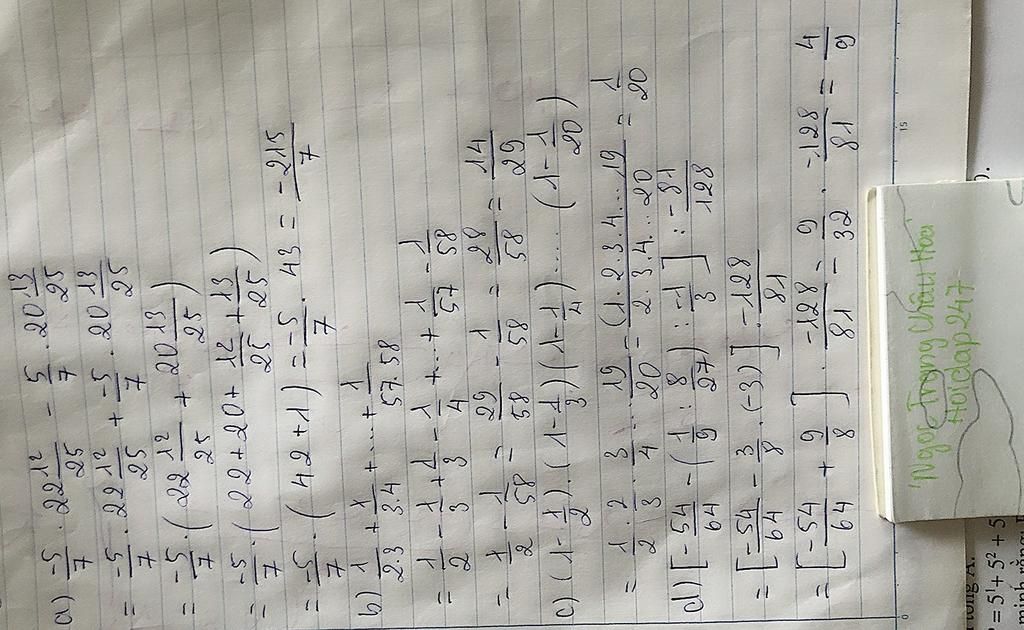 a) -5/7 . 22 12/25 - 5/7 . 20 13/25
= -5/7 . 22 12/25 + -5/7 . 20 13/25
= -5/7 . (22 12/25 + 20 13/25)
= -5/7 . (22+20+ 12/25 + 13/25)
= -5/7 . (42+1) = -5/7 . 43 = -215/7
b) 1/2.3 + 1/3.4 + ... + 1/57.58
= 1/2 - 1/3 + 1/3 - 1/4 + ... + 1/57 - 1/58
= 1/2 - 1/58 = 29/58 - 1/58 = 28/58 = 14/29
c) (1 - 1/2) . (1 - 1/3) (1 - 1/4) ..... (1 - 1/20)
= 1/2 . 2/3 . 3/4 ... 19/20 = (1.2.3.4...19/2.3.4...20 = 1/20
d) [-54/64 - (1/9 : 8/27) : -1/3] : -81/128
= [-54/64 - 3/8 . (-3)] . -128/81
= [-54/64 + 9/8] . -128/81 = 9/32 . -128/81 = 4/9
Ngọc Trang Châu Hoài
Hoidap247
= 5¹ + 5² + 5
minh rằng